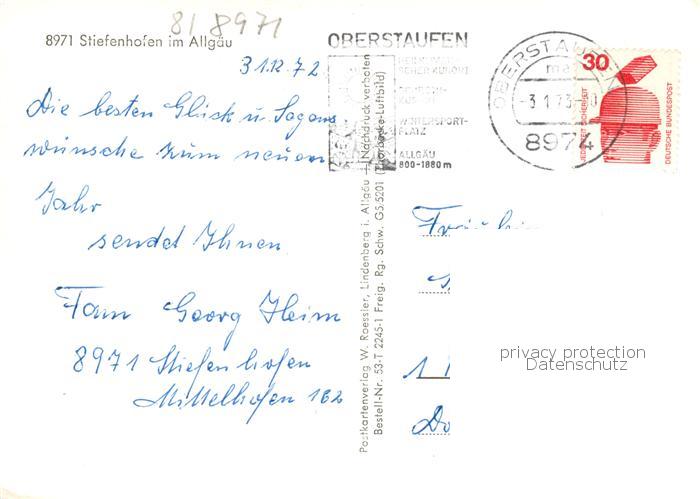 81 8971
8971 Stiefenhofen im Allgäu
31.12.72
Die besten Glück u. Segens
wünsche zum neuen
Jahr
sendet Ihnen
Fam Georg Heim
8971 Stiefenhofen
Mittelhofen 162
Postkartenverlag W. Roessler, Lindenberg i. Allgäu + Nachdruck verboten
Bestell-Nr. 53-T 2245-1 Freig. Rg. Schw. GS5201 (Thorbecke-Luftbild)
OBERSTAUFEN
WINTERSPORT-
PLATZ
ALLGÄU
800-1880 m
OBERSTAUFEN
-3.1.73
8974
30
JEDERZEIT SICHERHEIT
DEUTSCHE BUNDESPOST
Fräulein
1
Do
privacy protection
Datenschutz